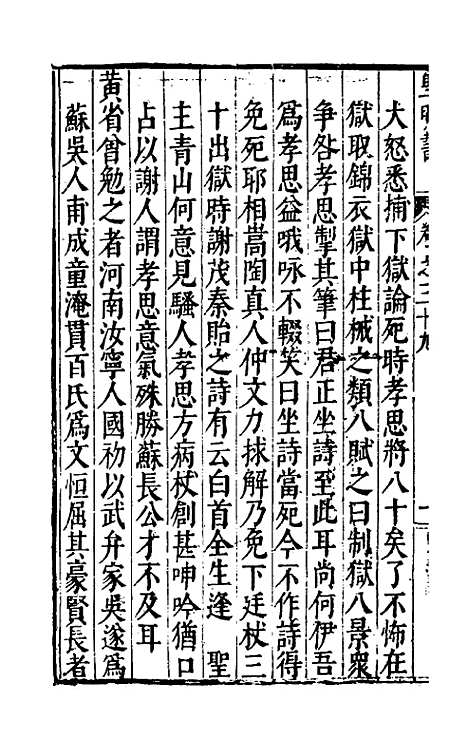 卷之三十九
大怒悉捕下獄論死時孝思將八十矣了不怖在
獄取錦衣獄中柱械之類八賦之曰制獄八景衆
爭咎孝思掣其筆曰君正坐詩至此耳尚何伊吾
爲孝思益哦咏不輟笑曰坐詩當死今不作詩得
免死耶相嵩陶真人仲文力捄解乃免下廷杖三
十出獄時謝茂秦貽之詩有云白首全生逢　聖
主青山何意見騷人孝思方病杖創甚呻吟猶口
占以謝人謂孝思意氣殊勝蘇長公才不及耳
黃省曾勉之者河南汝寧人國初以武弁家吳遂爲
蘇吳人甫成童淹貫百氏爲文恒屈其豪賢長者